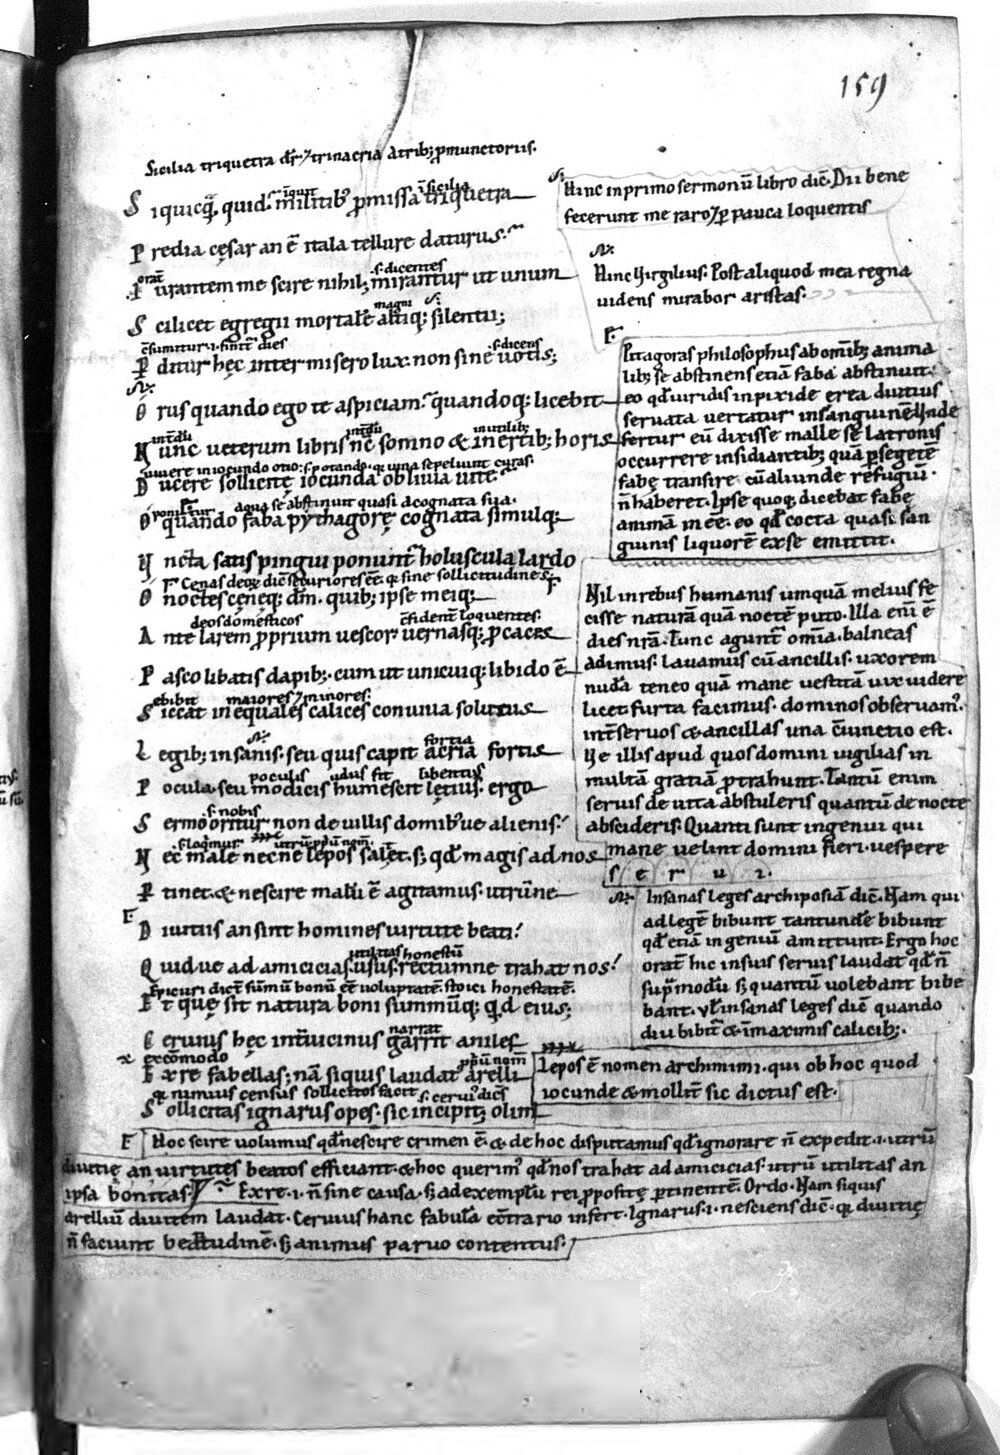 159
Sicilia triquetra dr̄ ⁊ trinacria atrib; p̄munctoriis.
S iquicq̄. quid. militib' p̄missa triquetra
īquit
ī sicilia
P redia cęsar an ē itala tellure daturus.
I urantem me scire nihil; mirantur ut unum
s. dicentes
S cilicet egregii mortalē altiq; silentii;
magni
P ditur hęc inter misero lux. non sine uotis;
s. dicens
O rus quando ego te aspiciam. quandoq; licebit
N unc ueterum libris nc̄ somno & inertib; horis
inutilib;
uiuere in iocundo otio. s. potando. q; uina sepeliunt curas.
D ucere sollicitę iocunda obliuia uitę.
aqua se abstinuit quasi acognata sua.
O quando faba pythagorę cognata simulq;
U ncta satis pingui ponunt̄ holuscula lardo
O noctes cęneq; dm̄. quib; ipse meiq;
deos domesticos
c̄fident̄ loquentes.
A nte larem p̄prium uescor uernasq; p̄caces
P asco libatis dapib;. cum ut unicuiq; libido ē
ebibit
maiores ⁊ minores.
S iccat inęquales calices conuiua solutus
L egib; insanis. seu quis capit acria fortis
fortia
poculis
udus fit
libentius
P ocula. seu modicis humescit lętius. ergo
s. nobis
S ermo oritur non de uillis domib'ue alienis.
N ec male necne lepos saltet. s; qd̄ magis ad nos
P tinet. & nescire malū ē agitamus. utrūne
D iuitiis an sint homines uirtute beati.
utilitas
honestū
Q uidue ad amicicias. usus. rectumne trahat nos.
Epicuri dicēt sūmū bonū eē uoluptatē. stoici honestatē.
E t quę sit natura boni summūq; qd̄ eius;
narrat
C eruius hęc int̄ uicinus garrit aniles
excōmodo
E x re fabellas; nā siquis laudat arelli
q; nimius census sollicitos facit
s. ceruī dicīs
S ollicitas ignarus opes. sic incipit; olim
Hinc in primo sermonū libro dic̄. Dii bene
fecerunt me raro ⁊ p̄ pauca loquentis
Hinc Virgilius. Post aliquod mea regna
uidens mirabor aristas.
Pitagoras philosophus ab omīb; anima
lib; sē abstinens etiā faba abstinuit.
eo qd̄ uiridis in pixide erea diutius
seruata uertatur in sanguinē Unde
fertur eū dixisse malle sē latronis
occurrere insidiantib; quā p̄ segetē
fabę transire cū aliunde refugiū.
n̄ haberet. Ipse quoq; dicebat fabę
animā inēē. eo qd̄ cocta quasi san
guinis liquorē ex se emittit.
Nil in rebus humanis umquā melius fe
cisse naturā quā noctē puto. Illa enī ē
dies nr̄a. Tunc agunt̄ omīa. balneas
adimus. lauamus cū ancillis. uxorem
nudā teneo quā mane uestitā uix uidere
licet furta facimus. dominos obseruam'.
int̄ seruos & ancillas una c̄iunctio est.
Ve illis apud quos domini uigilias in
multā gratiā p̄trahunt. Tantū enim
seruis de uita abstuleris quantū de nocte
absciderisˑ Quanti sunt ingenui qui
mane uelint domini fieri. uespere
s e r u i.
Insanas leges archiposiā dic̄. Nam qui
ad legē bibunt tantundē bibunt
qd̄ etiā ingeniū amittunt. Ergo hoc
orat̄ hic in suis seruis laudat qd̄ n̄
sup̄ modū s; quantū uolebant bibe
bant. vl̄ insanas leges dicīt quando
diu bibit̄ & īmaximis calicib;.
Lepos ē nomen archimimi. qui ob hoc quod
iocunde & mollit̄ sic dictus est.
Hoc scire uolumus qd̄ nescire crimen ē. & de hoc disputamus qd̄ ignorare n̄ expedit. i. utrū
diuitię an uirtutes beatos efficiant. & hoc querim' qd̄ nos trahat ad amicicias. utrū utilitas an
ipsa bonitas. Ex re. i. n̄ sine causa. s; ad exemplū rei p̄positę p̄tinentē. Ordo. Nam siquis
arelliū diuitem laudat. Ceruius hanc fabulā ec̄trario infert. Ignarus. i. nesciens dic̄. q; diuitię
n̄ faciunt beatitudinē. s; animus paruo contentus.